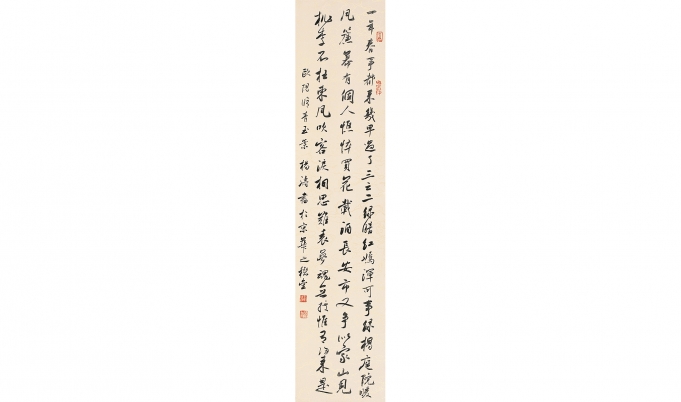 一年春事都來幾早過了三之二綠暗紅嫣渾可事綠楊庭院暖
風簾幕有個人憔悴買花載酒長安市又爭似家山見
桃李不枉東風吹客淚相思難表夢魂無據惟有歸來是
歐陽修青玉案 楊濤書於京華之